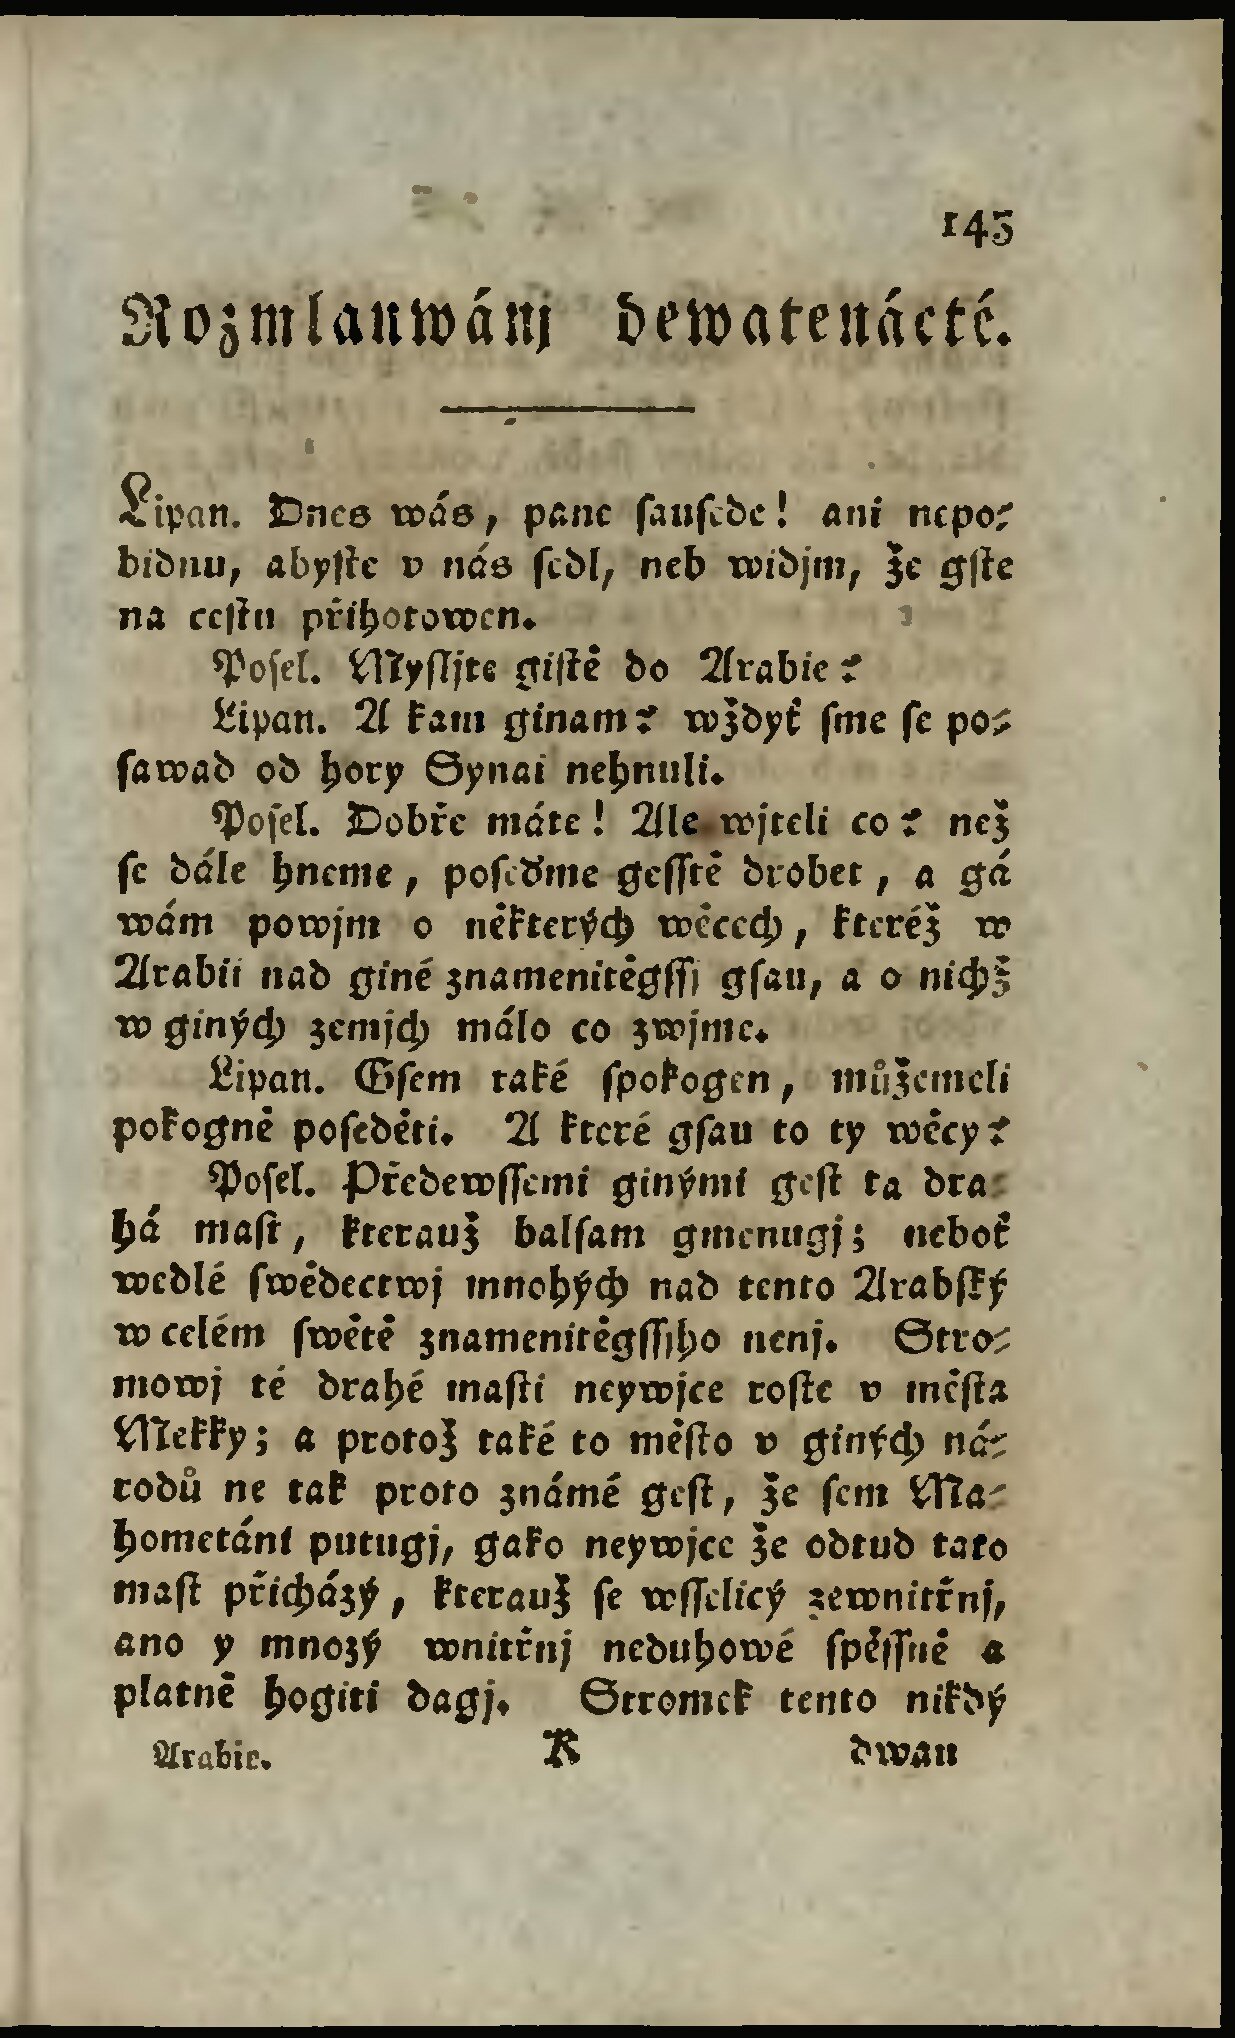 145
Rozmlauwánj dewatenácté.
Lipan. Dnes wás, pane sausede! ani nepo-
bidnu, abyste v nás sedl, neb widjm, že gste
na cestu přihotowen.
Posel. Mysljte gistě do Arabie?
Lipan. A kam ginam? wždyť sme se po-
sawad od hory Synai nehnuli.
Posel. Dobře máte! Ale wjteli co? než
se dále hneme, poseďme gessstě drobet, a gá
wám powjm o některých wěcech, kteréž w
Arabii nad giné znamenitěgssj gsau, a o nichž
w giných zemjch málo co zwjme.
Lipan. Gsem také spokogen, můžemeli
pokogně poseděti. A které gsau to ty wěcy?
Posel. Předewssemi ginými gest ta dra-
há mast, kterauž balsam gmenugj; neboť
wedlé swědectwj mnohých nad tento Arabský
w celém swětě znamenitěgssjho nenj. Stro-
mowj té drahé masti neywjce roste v města
Mekky; a protož také to město v giných ná-
rodů ne tak proto známé gest, že sem Ma-
hometáni putugj, gako neywjce že odtud tato
mast přicházý, kterauž se wsselicý zewnitřnj,
ano y mnozý wnitřnj neduhowé spěssně a
platně hogiti dagj. Stromek tento nikdý
Arabie. K dwau